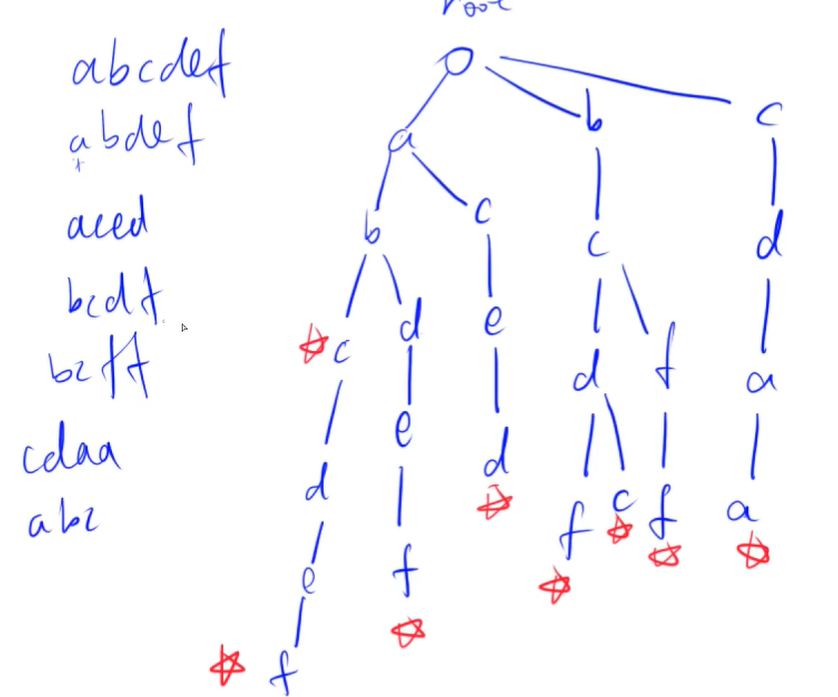 root
abcdef
abdef
aced
bcdf
bcff
cdaa
abc
a b c
b c c d
c d e f d a
d e d f c f a
e f
f